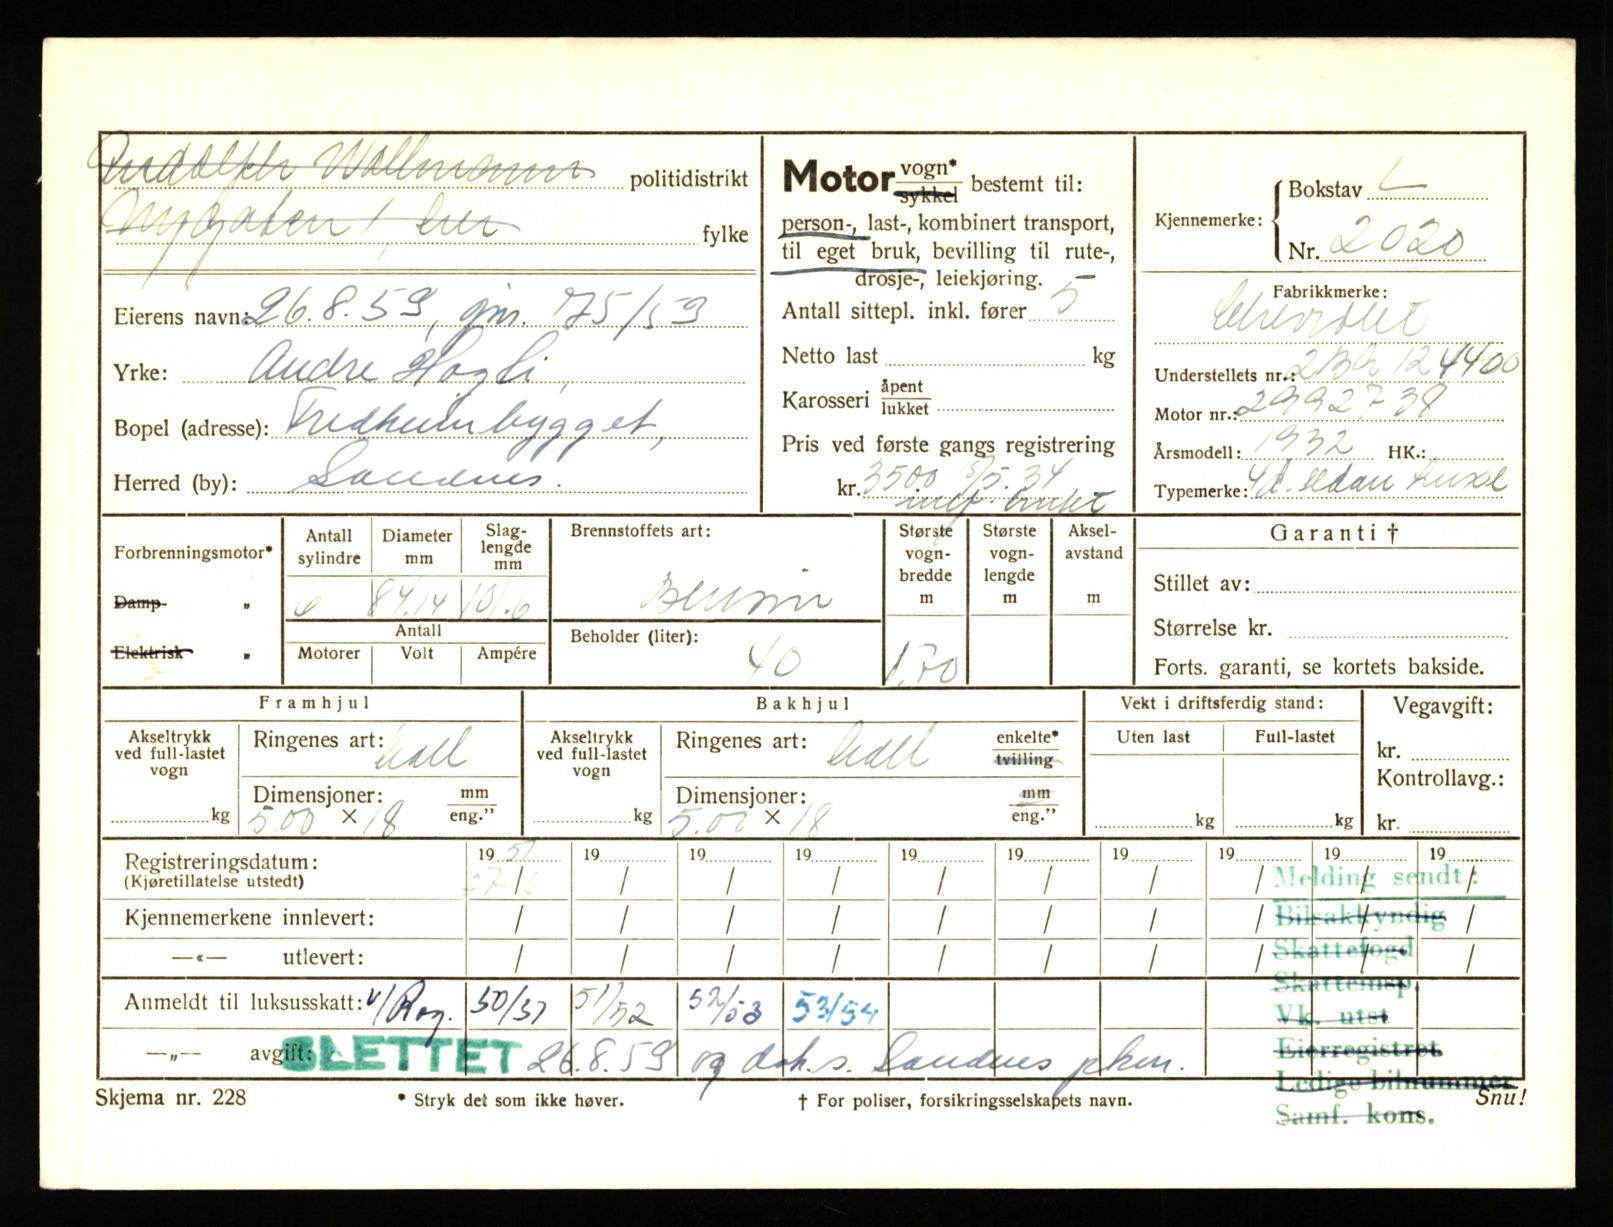 Rudolph Wallmann politidistrikt
Nygaten 1, her fylke
Eierens navn: 26.8.59, gjm. 175/59
Yrke: Andre Hogli,
Bopel (adresse): Fredheimbygget,
Herred (by): Sandnes.
Motor vogn* sykkel bestemt til:
person-, last-, kombinert transport,
til eget bruk, bevilling til rute-,
drosje-, leiekjøring.
Antall sittepl. inkl. fører 5
Netto last kg
Karosseri åpent lukket
Pris ved første gangs registrering
kr. 3500 15/5.34
innf. brukt
Kjennemerke: Bokstav L
Nr. 2020
Fabrikkmerke:
Chevrolet
Understellets nr.: 124400
Motor nr.: 2992738
Årsmodell: 1932 HK.:
Typemerke: 4d. sedan luxe
Forbrenningsmotor*
Damp „
Elektrisk „
Antall sylindre Diameter mm Slag-lengde mm
6 84.14 101.6
Antall
Motorer Volt Ampére
Brennstoffets art:
Bensin
Beholder (liter):
40
Største vogn-bredde m Største vogn-lengde m Aksel-avstand m
1,70
Garanti †
Stillet av:
Størrelse kr.
Forts. garanti, se kortets bakside.
Framhjul
Akseltrykk ved full-lastet vogn
kg
Ringenes art: hall
Dimensjoner: mm eng.”
5.00 × 18
Bakhjul
Akseltrykk ved full-lastet vogn
kg
Ringenes art: hall enkelte* tvilling
Dimensjoner: mm eng.”
5.00 × 18
Vekt i driftsferdig stand:
Uten last Full-lastet
kg kg
Vegavgift:
kr.
Kontrollavg.:
kr.
Registreringsdatum: 19 51 19 19 19 19 19 19 19 19 19
(Kjøretillatelse utstedt) 27/6 / / / / / / / / /
Kjennemerkene innlevert: / / / / / / / / / /
—«— utlevert: / / / / / / / / / /
Anmeldt til luksusskatt: v/Rog. 50/51 51/52 52/53 53/54
—„— avgift: SLETTET 26.8.59 og dok. s. Sandnes pkm.
Melding sendt:
Bilsakkyndig
Skattefogd
Skatteinsp.
Vk. utst
Eierregistret
Ledige bilnummer
Samf. kons.
Skjema nr. 228 * Stryk det som ikke høver. † For poliser, forsikringsselskapets navn. Snu!